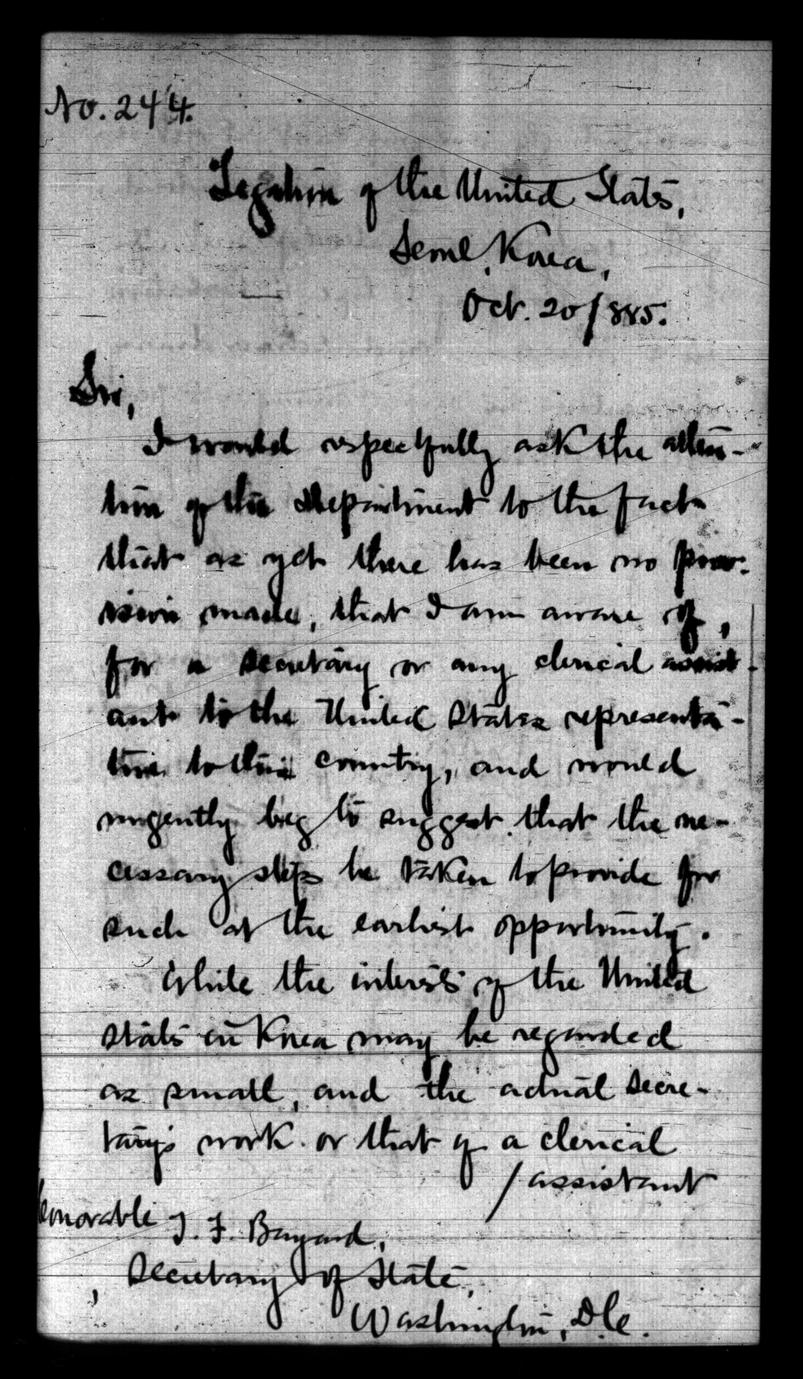 No. 244.
Legation of the United States,
Seoul, Korea,
Oct. 20/885.
Sir,
I would respectfully ask the atten-
tion of the Department to the fact
that as yet there has been no prov-
ision made, that I am aware of,
for a Secretary or any clerical assist-
ant to the United States representa-
tive to this country, and would
urgently beg to suggest that the ne-
cessary steps be taken to provide for
such at the earliest opportunity.
While the interests of the United
States in Korea may be regarded
as small, and the actual Secre-
tary's work or that of a clerical
/assistant
Honorable T. F. Bayard,
Secretary of State,
Washington, D.C.